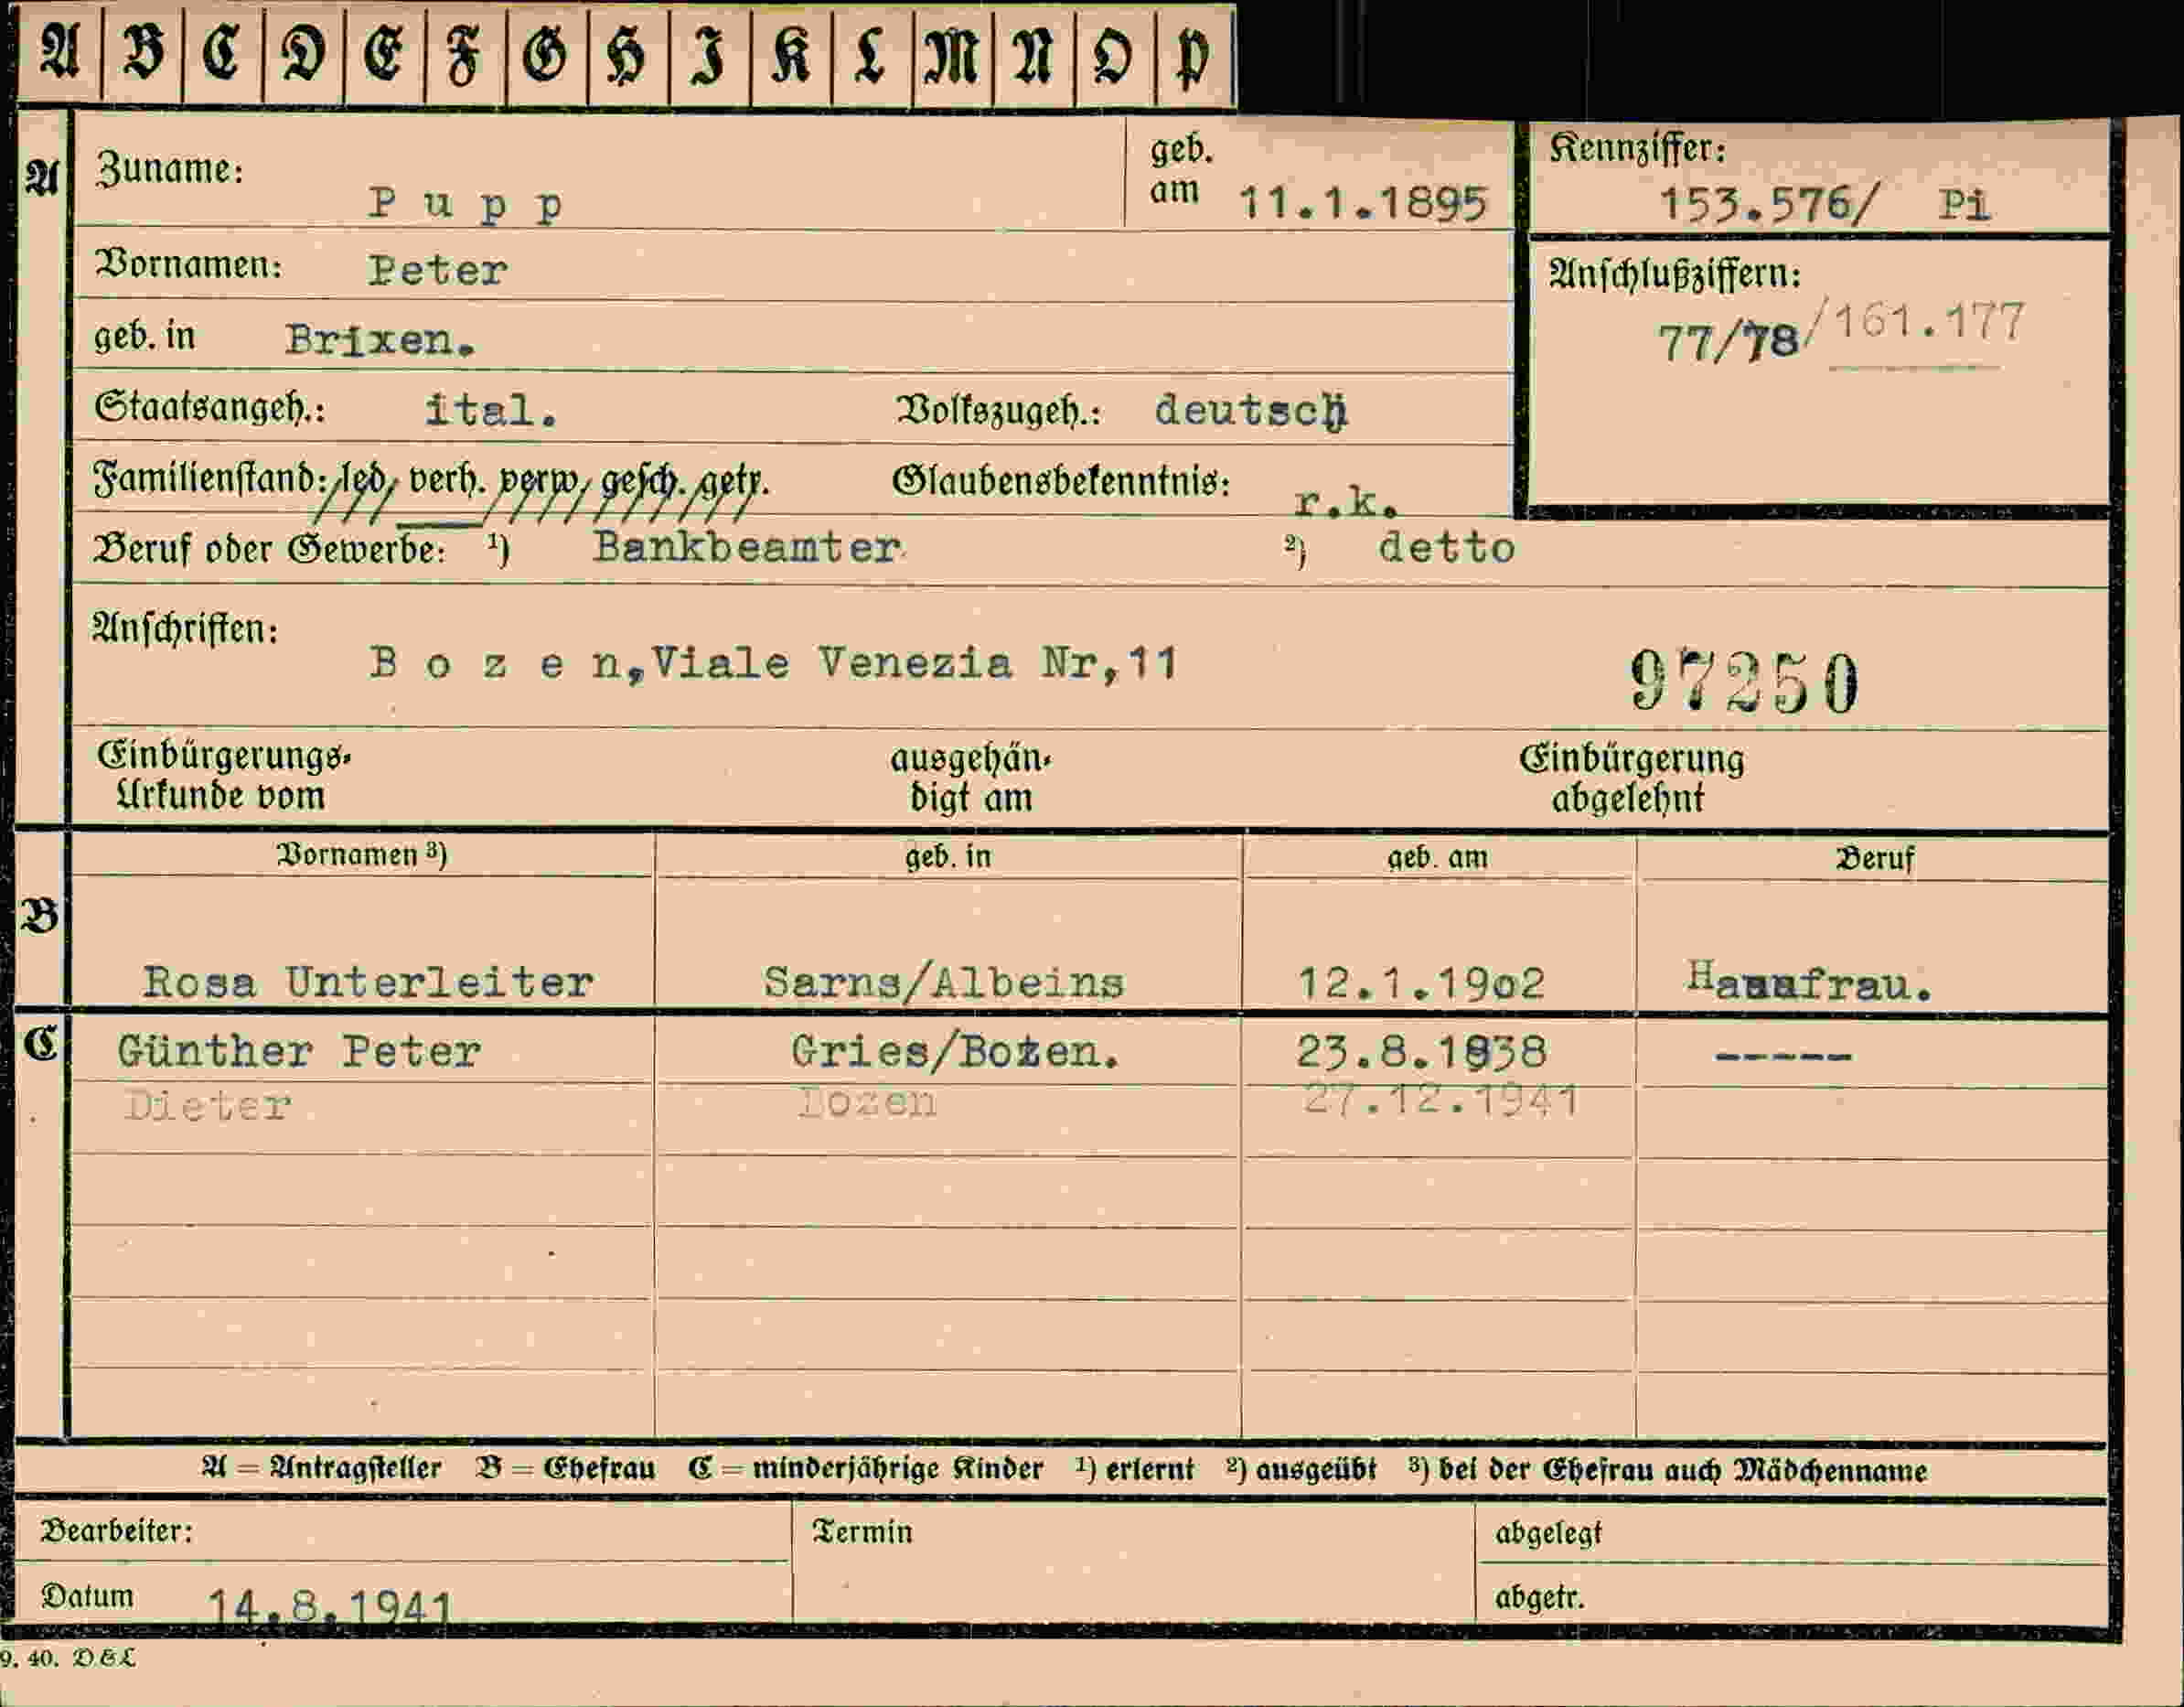 A B C D E F G H I K L M N O P
A Zuname: Pupp geb. am 11.1.1895 Kennziffer: 153.576/ Pi
Vornamen: Peter Anschlußziffern:
77/78/161.177
geb. in Brixen.
Staatsangeh.: ital. Volkszugeh.: deutsch
Familienstand: led. verh. verw. gesch. getr. Glaubensbekenntnis: r.k.
Beruf oder Gewerbe: ¹) Bankbeamter ²) detto
Anschriften:
Bozen,Viale Venezia Nr,11 97250
Einbürgerungs- ausgehän- Einbürgerung
Urkunde vom digt am abgelehnt
Vornamen ³) geb. in geb. am Beruf
B
Rosa Unterleiter Sarns/Albeins 12.1.19o2 Hausfrau.
C Günther Peter Gries/Bozen. 23.8.1938 -----
Dieter Bozen 27.12.1941
A = Antragsteller B = Ehefrau C = minderjährige Kinder ¹) erlernt ²) ausgeübt ³) bei der Ehefrau auch Mädchenname
Bearbeiter: Termin abgelegt
Datum 14.8.1941 abgetr.
9. 40. D&L